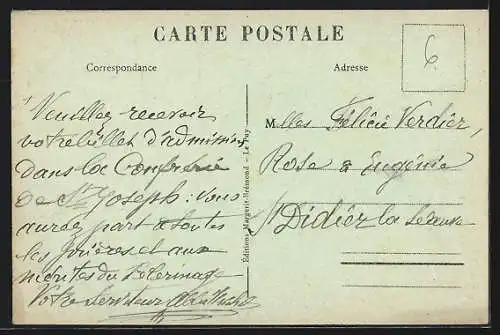 CARTE POSTALE
Correspondance
Adresse
6
Veuillez recevoir
votre billet d'admission
dans la Confrérie
de St Joseph : vous
aurez part à toutes
les prières et aux
mérites du Pélerinage
Votre Serviteur
Editions Margerit-Brémond - Le Puy
Mlles Félicie Verdier,
Rose & Eugénie
St Didier la Séauve